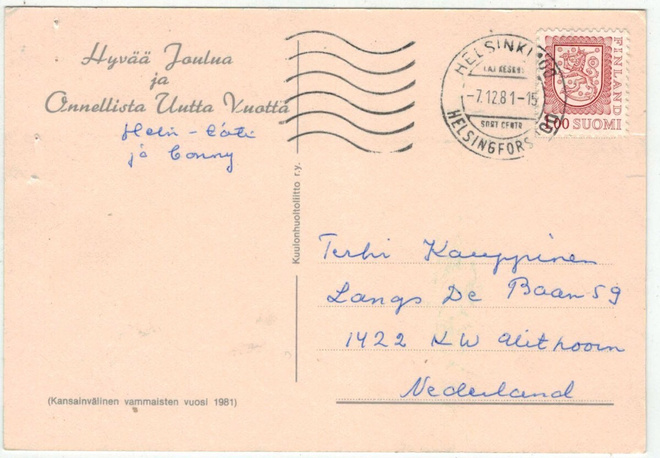 Hyvää Joulua
ja
Onnellista Uutta Vuotta
Heli-Cati
ja Conny
Kuulonhuoltoliitto r.y.
(Kansainvälinen vammaisten vuosi 1981)
HELSINKI
LAJ.KESKUS
-7.12.81-15
SORT.CENTR
HELSINGFORS
FINLAND
1,00 SUOMI
Terhi Kauppinen
Langs De Baan 59
1422 KW Uithoorn
Nederland